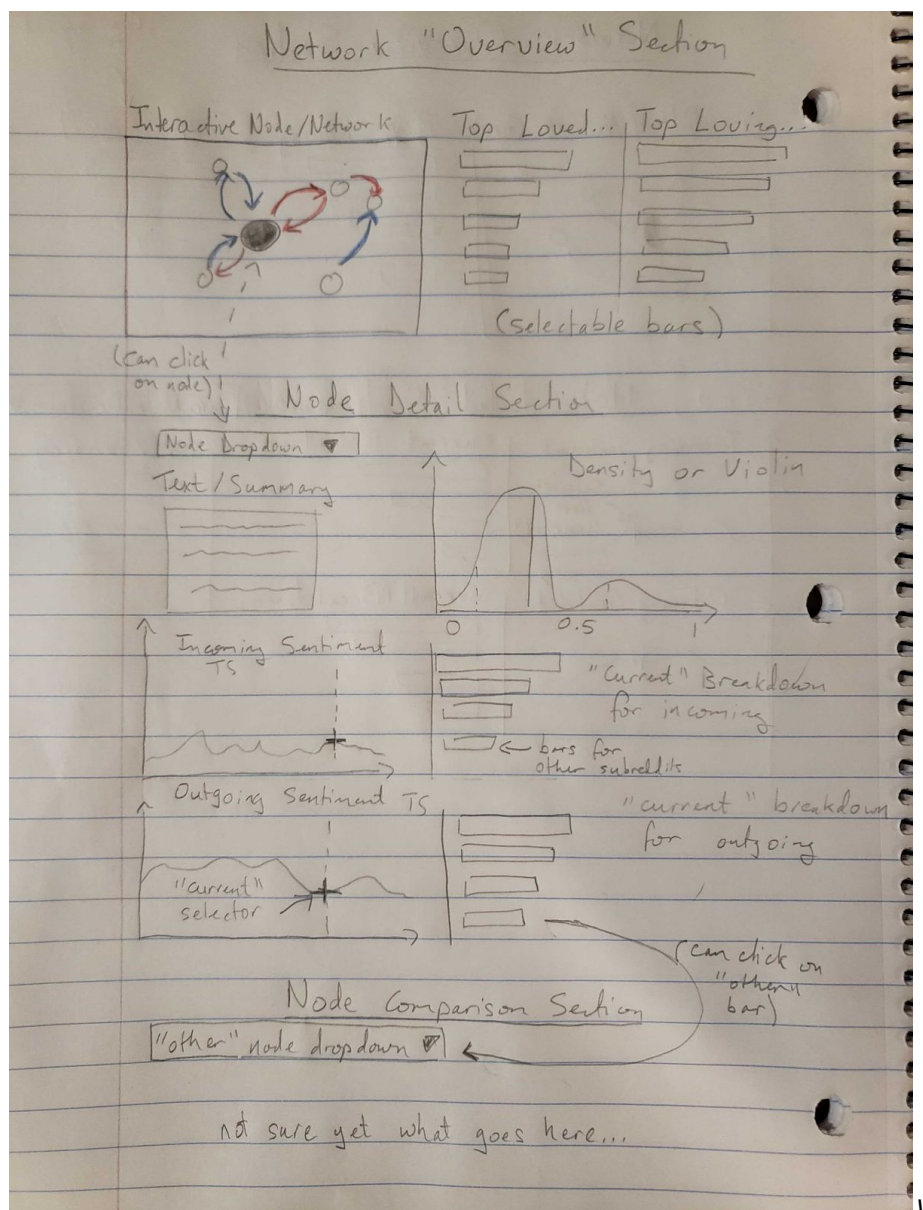 Network "Overview" Section
Interactive Node/Network
Top Loved...
Top Loving...
(selectable bars)
(can click
on node)
Node Detail Section
Node Dropdown
Text/Summary
Density or Violin
0 0.5 1
Incoming Sentiment
TS
"Current" Breakdown
for incoming
bars for
other subreddits
Outgoing Sentiment TS
"current" breakdown
for outgoing
"current"
selector
(can click on
"other"
bar)
Node Comparison Section
"other" node dropdown
not sure yet what goes here...